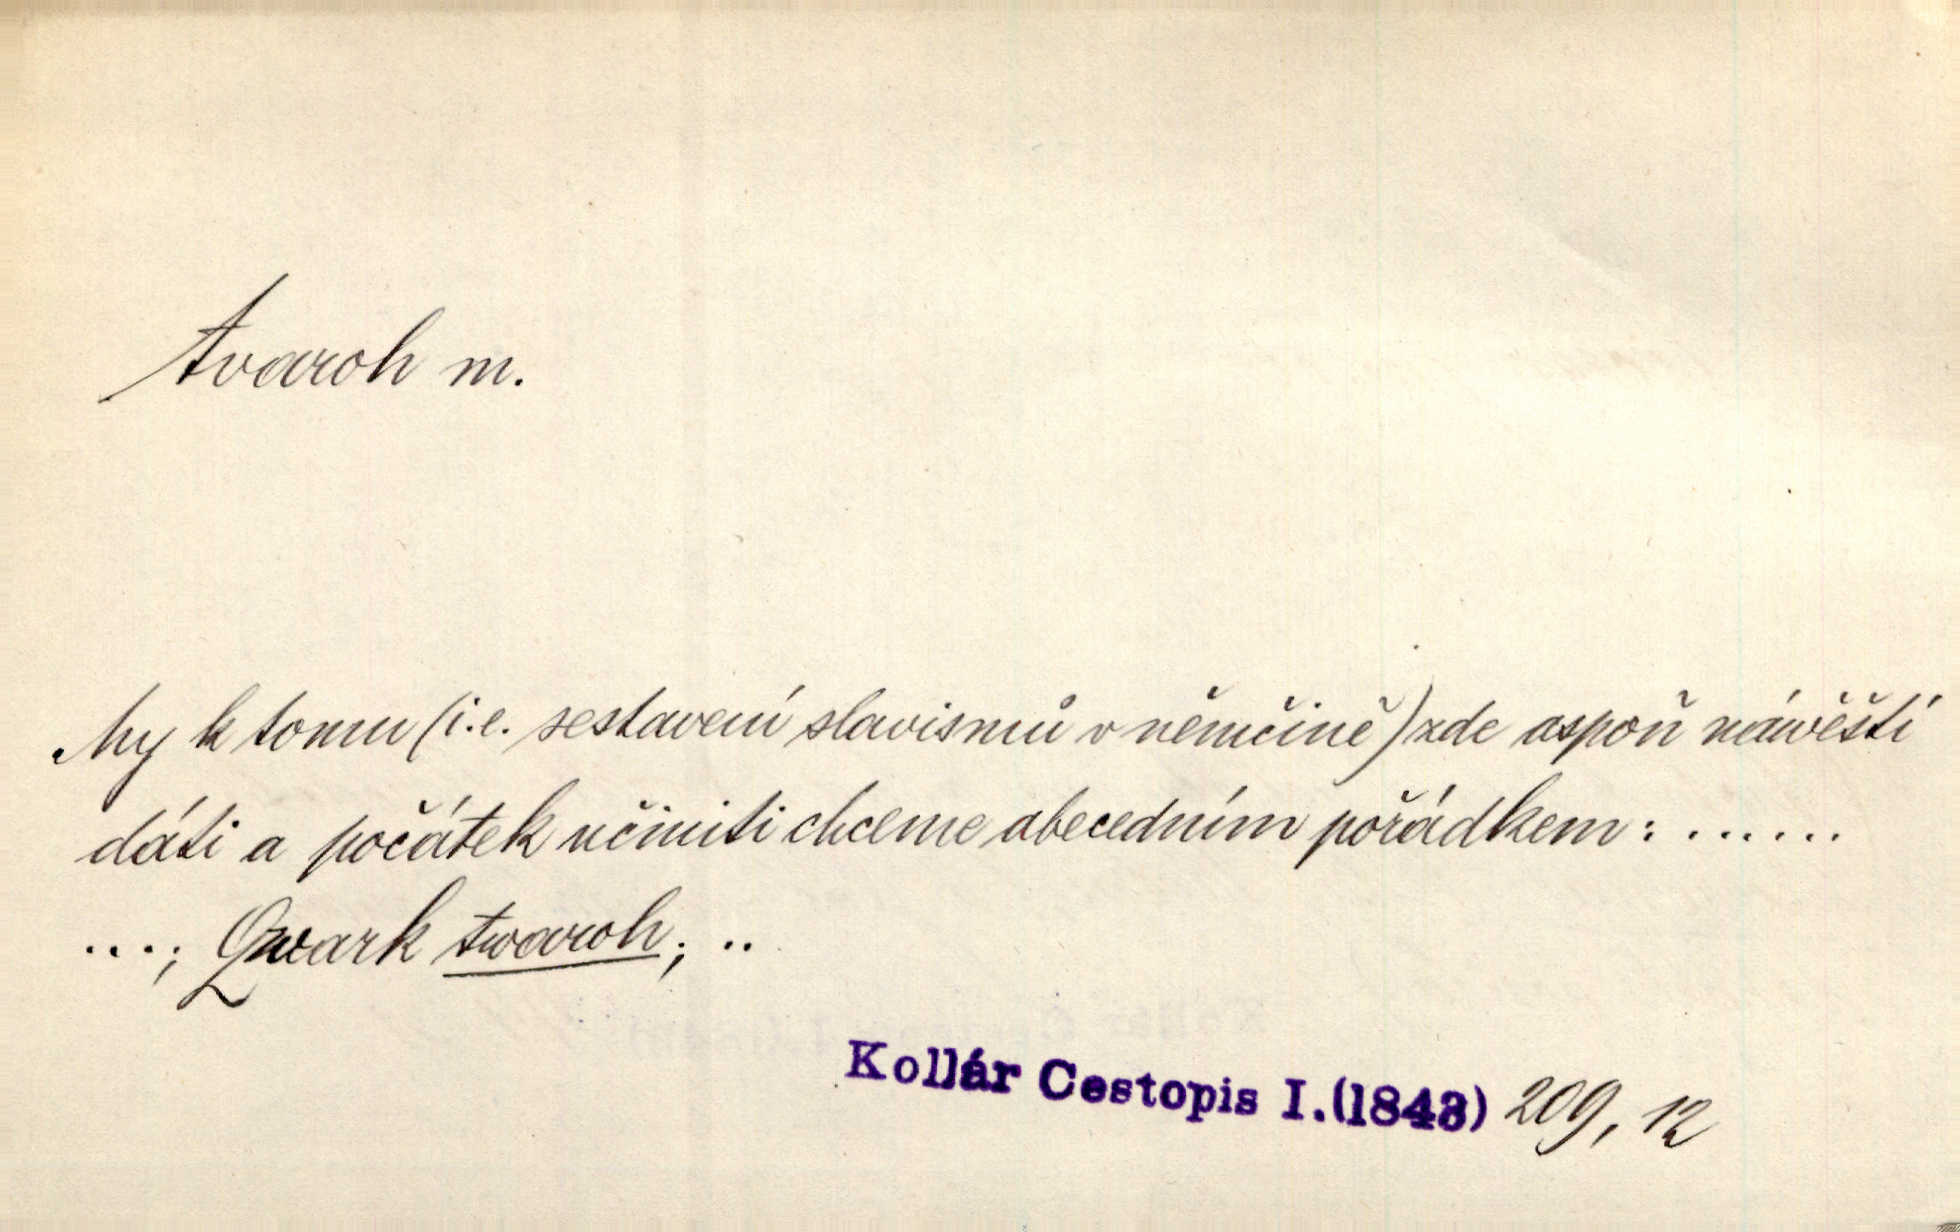 tvaroh m.
My k tomu (i.e. sestavení slavismů v němčině) zde aspoň návěští
dáti a počátek učiniti chceme abecedním pořádkem: ......
....; Qwark twaroh; ..
Kollár Cestopis I.(1843) 209, 12